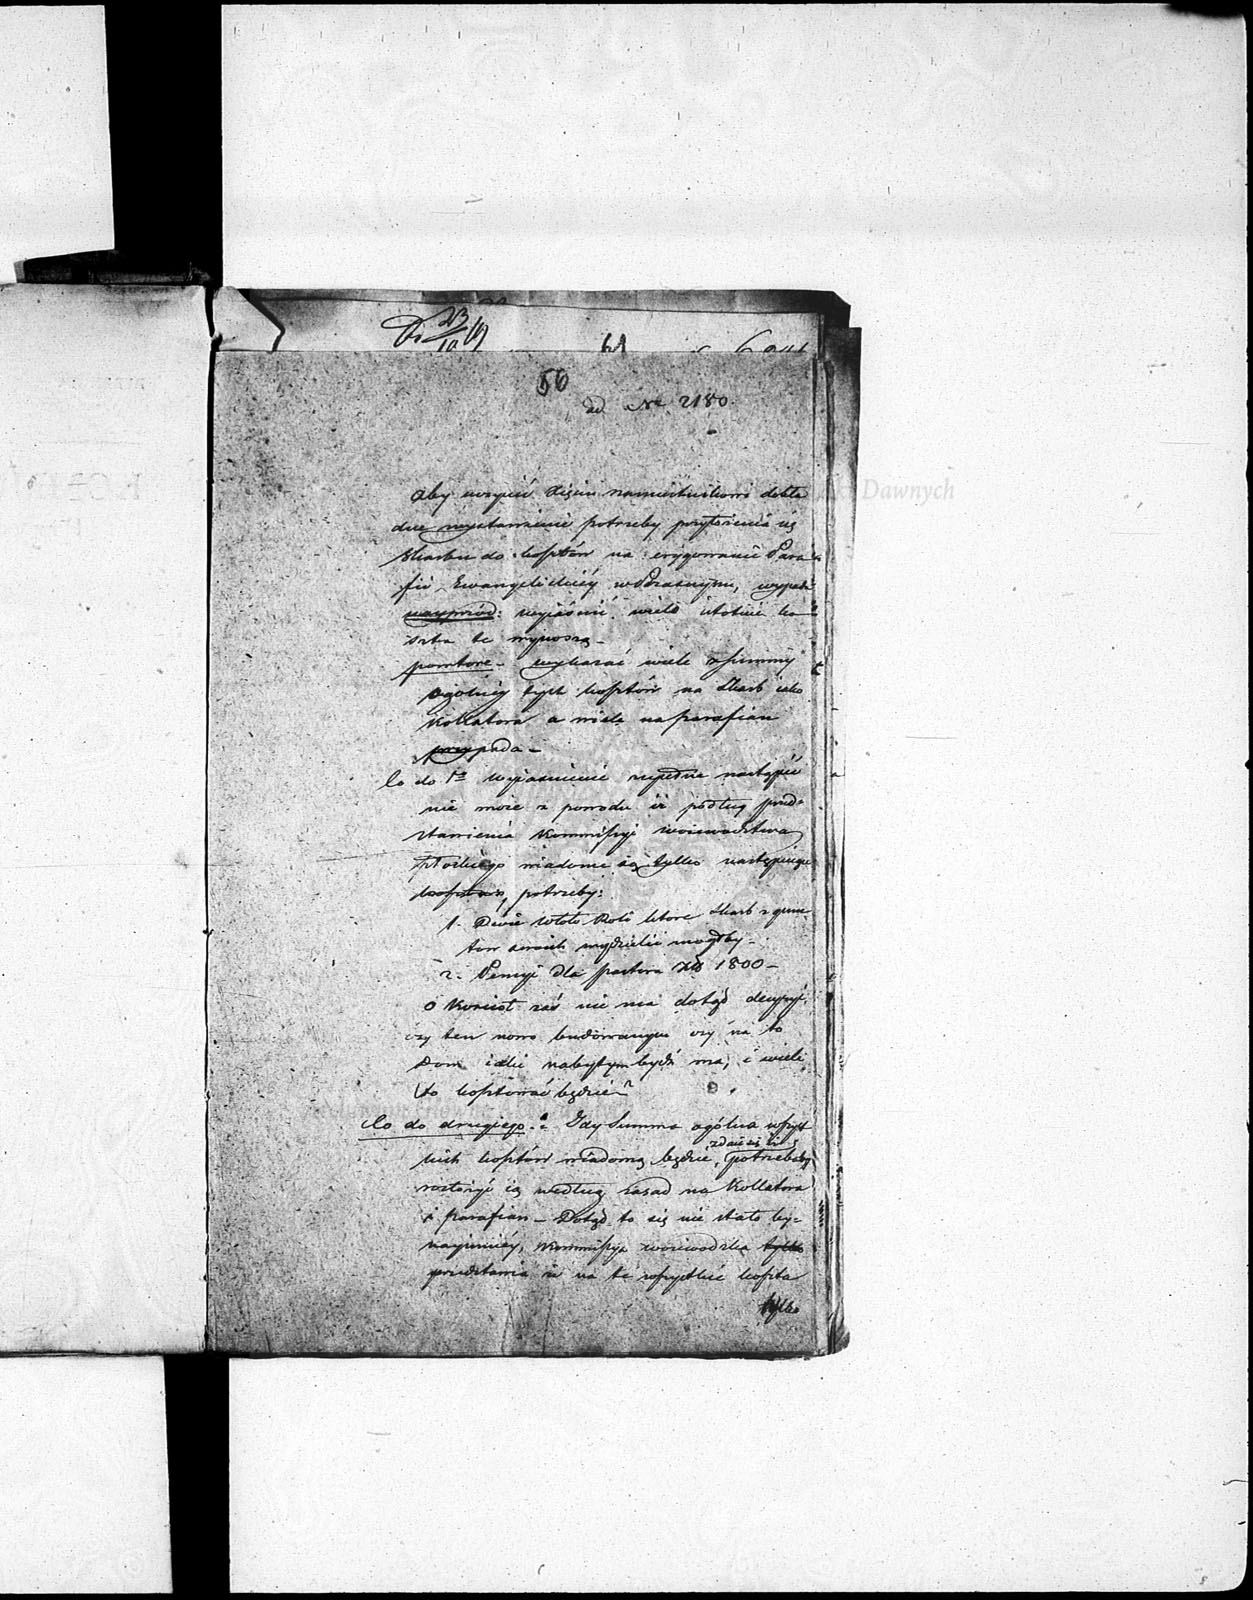 23/10 19
61
56
ad Nro 2180.
Aby uczynić Xięciu namiestnikowi dokła
dne wystawienie potrzeby przyłożenia się
skarbu do kosztów na erygowanie Para
fii Ewangelickiéy w Przasnyszu, wypada
nayprzód: wyiaśnić wiele istotnie ko
szta te wynoszą –
powtore – wykazać wiele z summy
ogólnéy tych kosztów na skarb iako
Kollatora a wiele na parafian
przypada –
Co do 1o wyiaśnienie zupełne nastąpić
nie może z powodu iż podług przed=
stawienia Kommissyi woiewództwa
Płockiego wiadome są tylko następuiące
potrzeby:
1. Dwie włoki Roli które skarb z grun
tów swoich wydzielić mógłby –
2. Pensyi dla pastora Złp 1800 –
o Kościół zaś nie ma dotąd decyzyi,
czy ten nowo budowanym czy na to
Dom iaki nabytym bydź ma, i wiele
to kosztować będzie?
Co do drugiego: Gdy Summa ogólna wszyst
kich kosztów wiadomą będzie, zdaie się iż potrzeba
rozłożyć ią według zasad na Kollatora
i parafian – Dotąd to się nie stało by=
naymniéy, Kommissya woiewódzka tylko
przedstawia iż na te wszystkie koszta
tylko
Dawnych